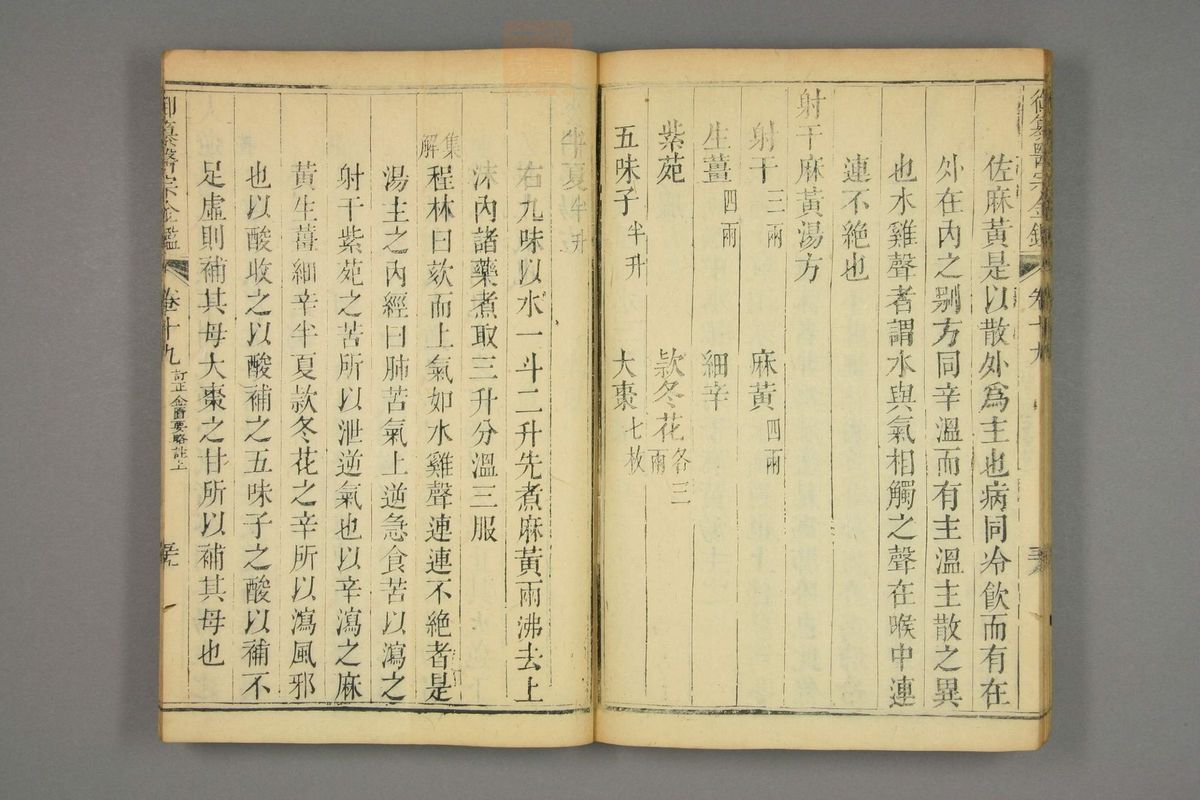 佐麻黃是以散外爲主也病同冷飲而有在
外在內之别方同辛溫而有主溫主散之異
也水雞聲者謂水與氣相觸之聲在喉中連
連不絶也
射干麻黃湯方
射干三兩 麻黃四兩
生薑四兩 細辛
紫苑 款冬花各三兩
五味子半升 大棗七枚
半夏半升
右九味以水一斗二升先煮麻黃兩沸去上
沫內諸藥煮取三升分溫三服
集解程林曰欬而上氣如水雞聲連連不絶者是
湯主之內經曰肺苦氣上逆急食苦以瀉之
射干紫苑之苦所以泄逆氣也以辛瀉之麻
黃生薑細辛半夏款冬花之辛所以瀉風邪
也以酸收之以酸補之五味子之酸以補不
足虛則補其母大棗之甘所以補其母也
御纂醫宗金鑑 卷十九 訂正金匱要略註上 五十九